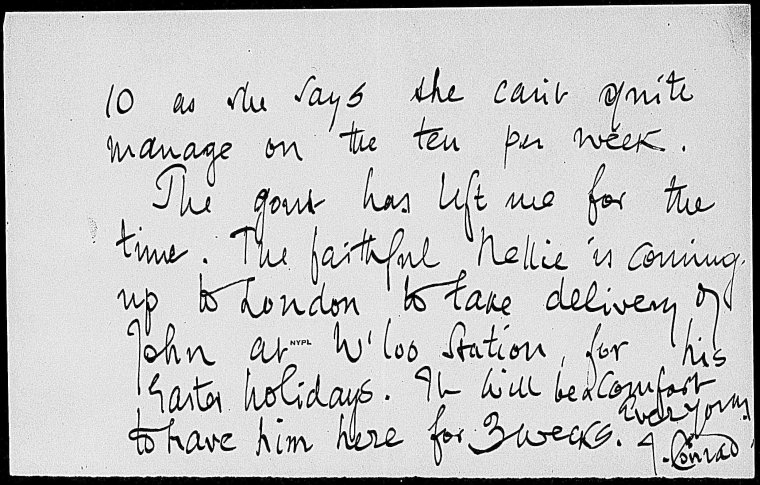 10 as she says she can't quite
manage on the ten per week.
The gout has left me for the
time. The faithful Nellie is coming
up to London to take delivery of
John at NYPL W'loo Station, for his
Easter holidays. It will be a comfort
to have him here for 3 weeks. Ever yours
J. Conrad